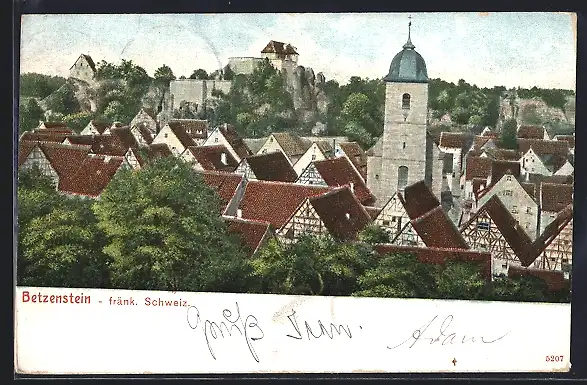 Betzenstein - fränk. Schweiz.
Gruß Adam
5207